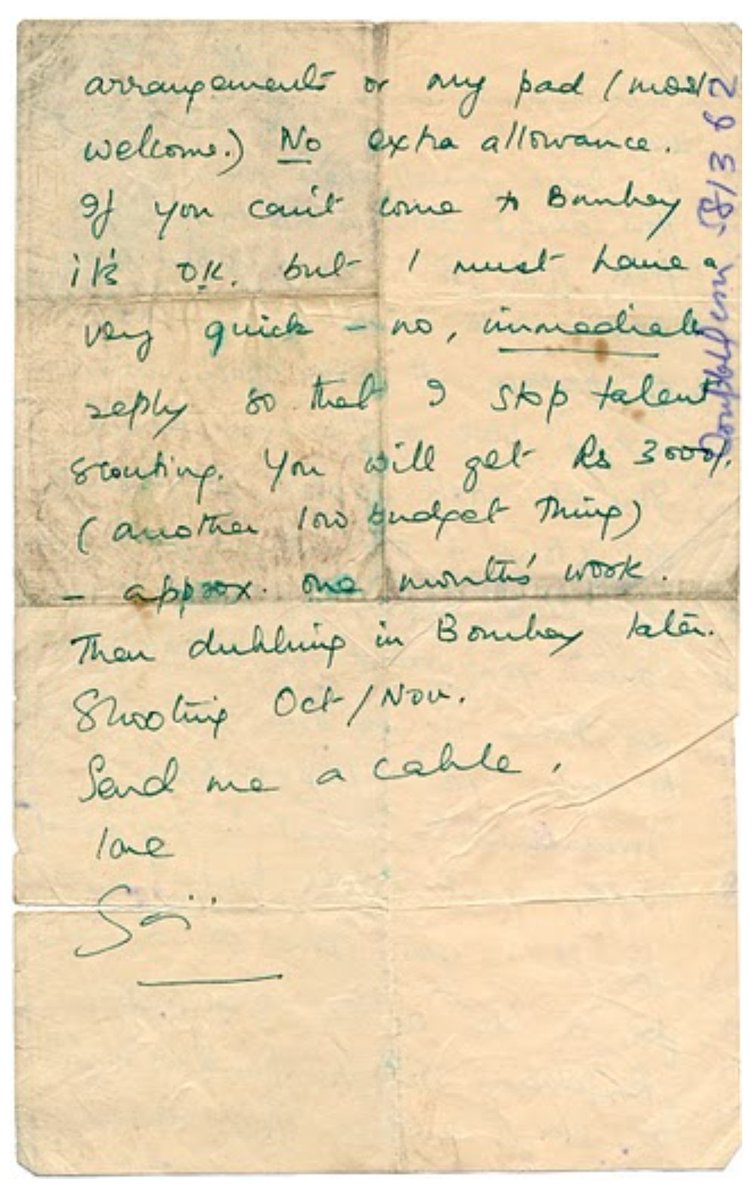 arrangements or my pad (most
welcome.) No extra allowance.
If you can't come to Bombay
it's O.K. but I must have a
very quick – no, immediate
reply so that I stop talent
scouting. You will get Rs 3000/.
(another low budget thing)
– approx. one months' work.
Then dubbing in Bombay later.
Shooting Oct/Nov.
Send me a cable.
love
Sai
581362